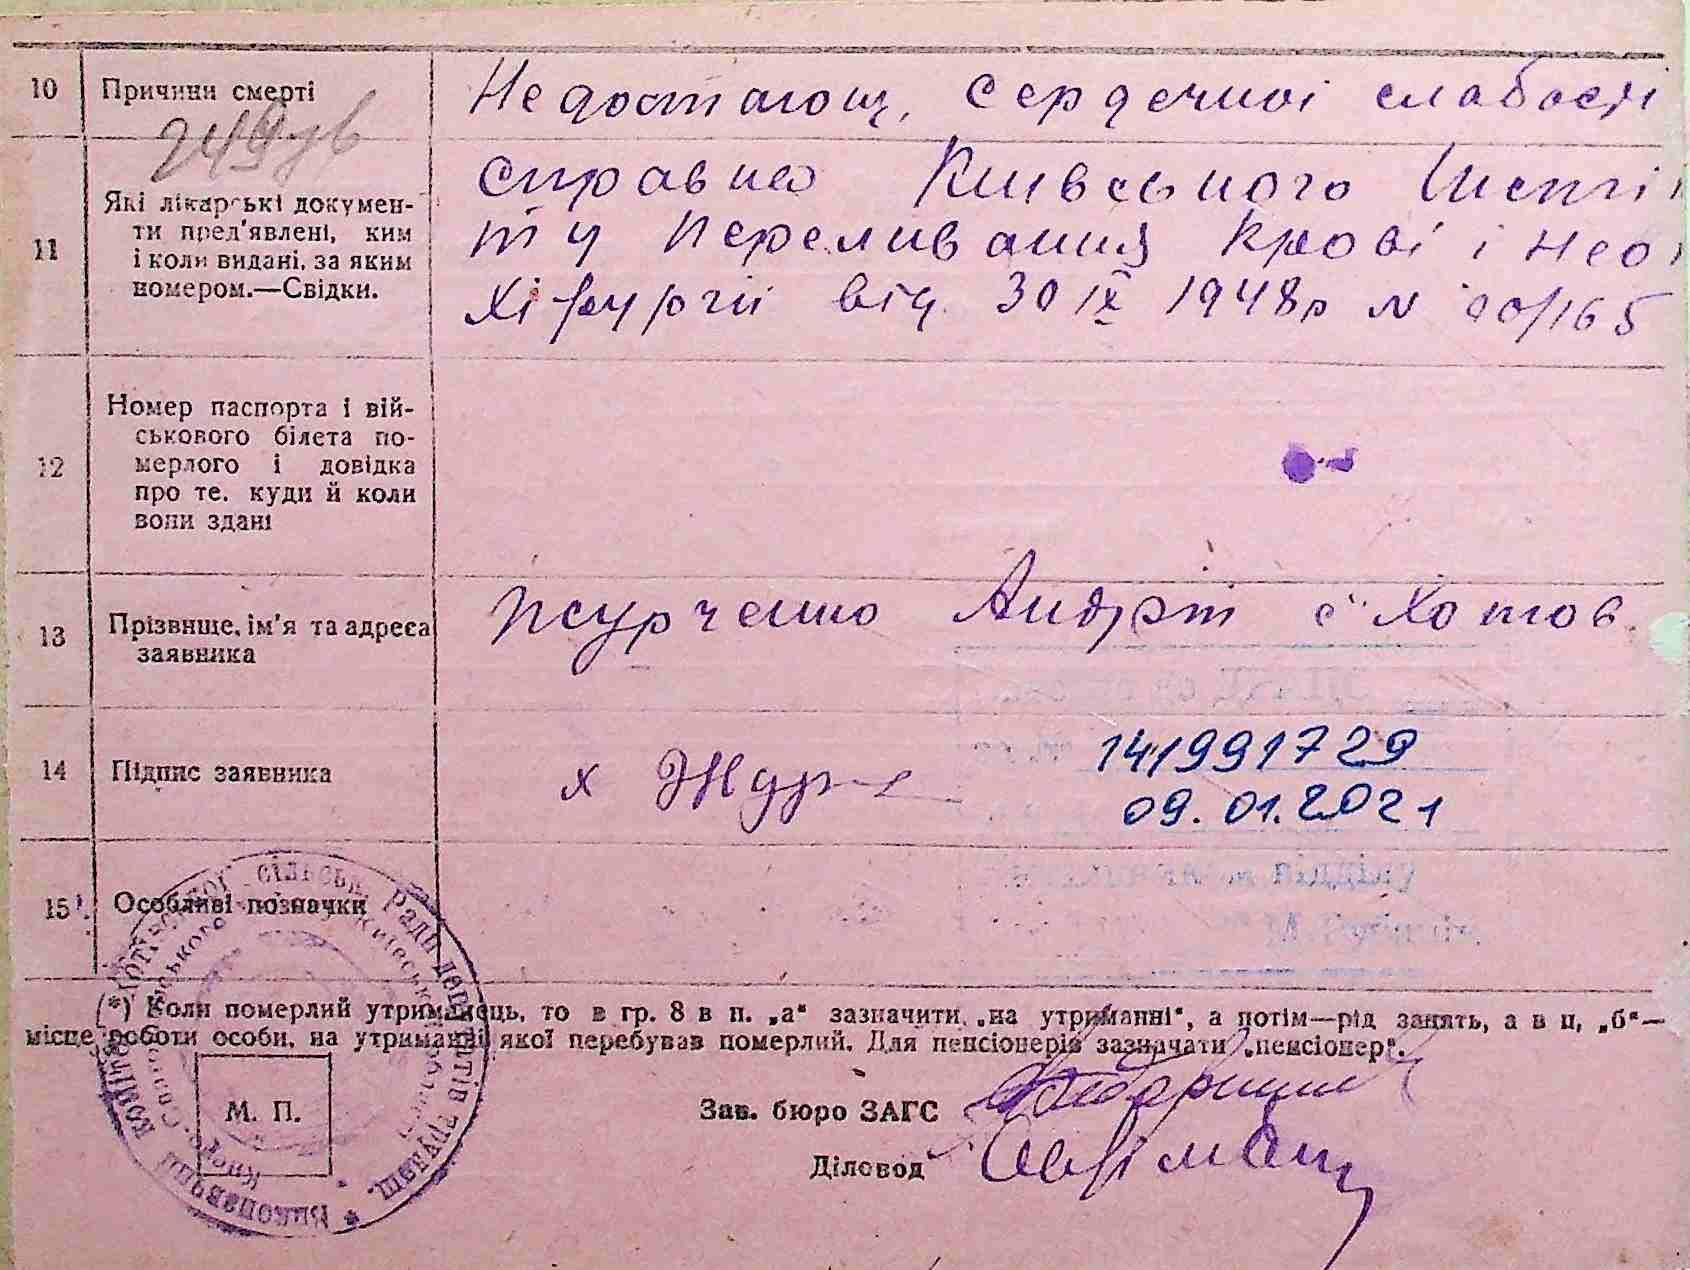 10 Причини смерті Недостаточ. Сердечної слабості
249
11 Які лікарські докумен-
ти пред'явлені, ким
і коли видані, за яким
номером.—Свідки.
справка Київського Інсті
ту Переливання Крові і Нео
Хірургії від 30 IX 1948р N 90/165
12 Номер паспорта і вій-
ськового білета по-
мерлого і довідка
про те, куди й коли
вони здані
13 Прізвище, ім'я та адреса
заявника
Андрій с. Хотов
14 Підпис заявника х
141991729
09.01.2021
15 Особливі позначки
відділу
(*) Коли померлий утриманець, то в гр. 8 в п. „а“ зазначити „на утриманні“, а потім—рід занять, а в п. „б“—
місце роботи особи, на утриманні якої перебував померлий. Для пенсіонерів зазначати „пенсіонер“.
М. П.
Зав. бюро ЗАГС
Діловод
Виконавчий комітет Хотівської сільськ. Ради депутатів трудящ.
Києво-Святошинського Київської області